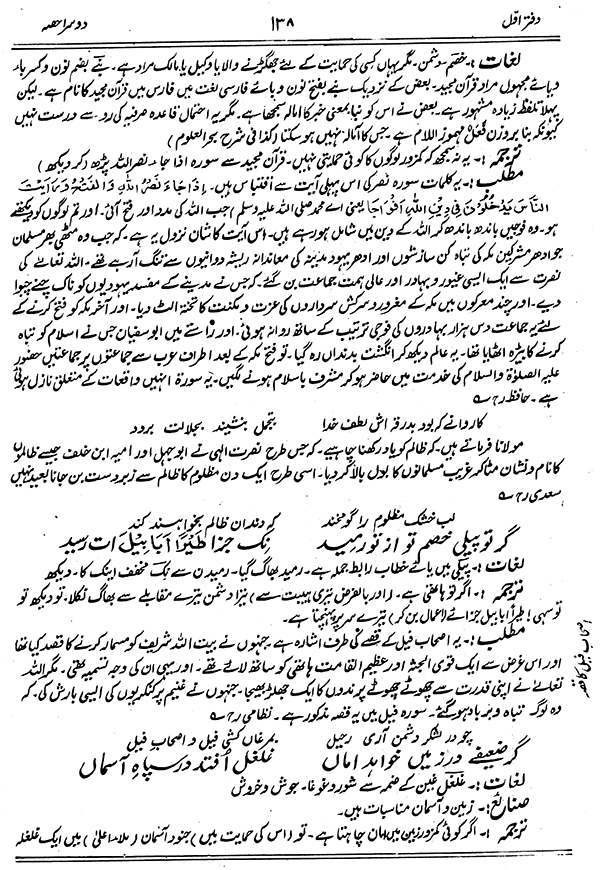 دفتر اوّل ۱۳۸ دوسرا حصہ
لغات :۔ خصم۔ دشمن۔ مگر یہاں کسی کی حمایت کے لئے جھگڑنے والا یا وکیل یا مالک مراد ہے۔ نبے بضم نون و کسر باء
و یائے مجہول مراد قرآن مجید۔ بعض کے نزدیک نبے بفتح نون و یائے فارسی لغت میں فارس میں قرآن مجید کا نام ہے۔ لیکن
پہلا تلفظ زیادہ مشہور ہے۔ بعض نے اس کو نبا بمعنی خبر کا امالہ سمجھا ہے۔ مگر یہ احتمال قاعدہ صرفیہ کی رو سے درست نہیں
کیونکہ نبا بروزن فعل مہموز اللام ہے۔ جس کا امالہ نہیں ہو سکتا (کذا فی شرح بحر العلوم)
ترجمہ :۔ یہ نہ سمجھ کہ کمزور لوگوں کا کوئی حمایتی نہیں۔ قرآن مجید سے سورہ اذا جاء نصر اللہ پڑھ (کر دیکھ)
مطلب :۔ یہ کلمات سورہ نصر کی اس پہلی آیت سے اقتباس ہیں۔ اِذَا جَاءَ نَصْرُ اللّٰہِ وَالْفَتْحُ وَرَأَیْتَ
النَّاسَ یَدْخُلُوْنَ فِیْ دِیْنِ اللّٰہِ اَفْوَاجًا یعنی اے محمد صلی اللہ علیہ وسلم) جب اللہ کی مدد اور فتح آئی۔ اور تم لوگوں کو دیکھتے
ہو۔ وہ فوجیں باندھ باندھ کر اللہ کے دین میں شامل ہو رہے ہیں۔ اس آیت کا شان نزول یہ ہے۔ کہ جب وہ مٹھی بھر مسلمان
جو ادھر مشرکین مکہ کی تباہ کن سازشوں اور ادھر یہود مدینہ کی معاندانہ ریشہ دوانیوں سے تنگ آ رہے تھے۔ اللہ تعالےٰ کی
نصرت سے ایک ایسی غیور و بہادر اور عالی ہمت جماعت بن گئے۔ کہ جس نے مدینے کے مفسد یہودیوں کو ناک چنے چبوا
دیے۔ اور چند معرکوں میں مکہ کے مغرور و سرکش سرداروں کی عزت و مکنت کا تختہ الٹ دیا۔ اور آخر مکہ کو فتح کرنے کے
لئے یہ جماعت دس ہزار بہادروں کی فوجی ترتیب کے ساتھ روانہ ہوئی۔ اور راستے میں ابو سفیان جس نے اسلام کو تباہ
کرنے کا بیڑہ اٹھایا تھا۔ یہ عالم دیکھ کر انگشت بدنداں رہ گیا۔ تو فتح مکہ کے بعد اطراف عرب سے جماعتوں پر جماعتیں حضور
علیہ الصلوٰۃ والسلام کی خدمت میں حاضر ہو کر مشرف باسلام ہونے لگیں۔ یہ سورۃ انہیں واقعات کے متعلق نازل ہوئی
ہے۔ حافظ رح ؎
کاروانے کہ بود بدرقہ اش لطف خدا بتجمل بنشیند بجلالت برود
مولانا فرماتے ہیں۔ کہ ظالم کو یاد رکھنا چاہیے۔ کہ جس طرح نصرت الٰہی نے ابو جہل اور امیہ ابن خلف جیسے ظالموں
کا نام و نشان مٹا کر غریب مسلمانوں کا بول بالا کر دیا۔ اسی طرح ایک دن مظلوم کا ظالم سے زبردست بن جانا بعید نہیں
سعدی رح ؎
لب خشک مظلوم را گو بخند کہ دندان ظالم بخواہند کند
گر تو پیلی خصم تو از تو رمید نِک جزا طَیْرًا اَبَابِیْلَت رسید
لغات :۔ پیلی میں یائے خطاب رابطہ جملہ ہے۔ رمید بھاگ گیا۔ رمیدن سے نِک مخفف اینک کا۔ دیکھ
ترجمہ :۔ اگر تو ہاتھی ہے۔ (اور بالفرض تیری ہیبت سے) تیرا دشمن تیرے مقابلے سے بھاگ نکلا۔ تو دیکھ تو
تو سہی! طیراً ابابیل جزائے (اعمال بن کر) تیرے سر پر پہنچتا ہے۔
مطلب :۔ یہ اصحاب فیل کے قصے کی طرف اشارہ ہے۔ جنہوں نے بیت اللہ شریف کو مسمار کرنے کا قصد کیا تھا
اور اس غرض سے ایک قوی الجثہ اور عظیم القامت ہاتھی کو ساتھ لائے تھے۔ اور یہی ان کی وجہ تسمیہ تھی۔ مگر اللہ
تعالےٰ نے اپنی قدرت سے چھوٹے چھوٹے پرندوں کا ایک جھلڑ بھیجا۔ جنہوں نے غنیم پر کنکریوں کی ایسی بارش کی۔ کہ
وہ لوگ تباہ و برباد ہو گئے۔ سورہ فیل میں یہ قصہ مذکور ہے۔ نظامی رح ؎
اصحاب فیل کا قصہ
چو در لشکر دشمن آری رحیل بمرغاں کشی فیل و اصحاب فیل
گر ضعیفے در زمیں خواہد اماں غلغل اُفتد در سپاہِ آسماں
لغات :۔ غلغل غین کے ضمہ سے شور و غوغا۔ جوش و خروش
صنائع :۔ زمین و آسمان مناسبات ہیں۔
ترجمہ :۔ اگر کوئی کمزور زمین میں امان چاہتا ہے۔ تو (اس کی حمایت میں) جنود آسمان (ملاء اعلیٰ) میں ایک غلغلہ